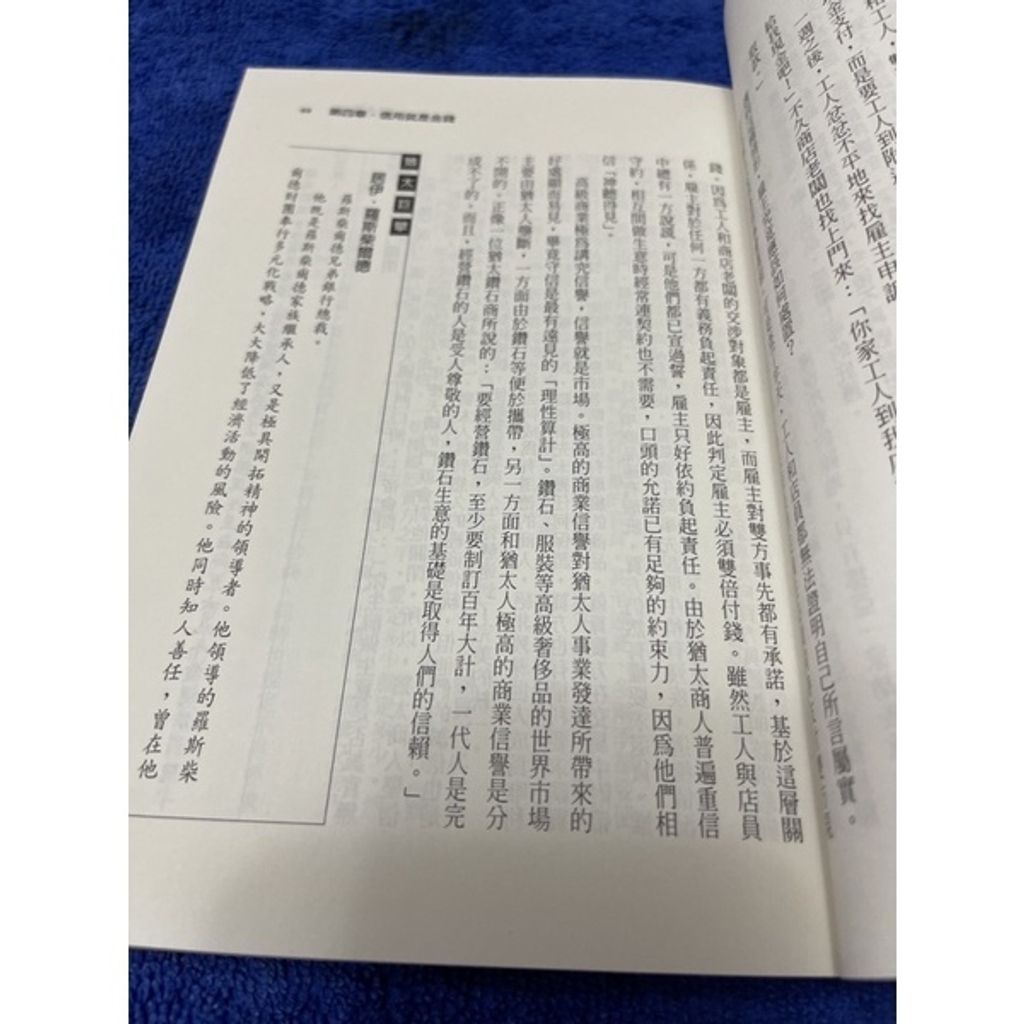 和工人，雙
金支付，而是要工人到附近
一週之後，工人忿忿不平地來找雇主申訴
給我現金吧！」不久商店老闆也找上門來：「你家工人到我店
工人和店員都無法證明自己所言屬實。
第四章・信用就是金錢
錢。因為工人和商店老闆的交涉對象都是雇主，而雇主對雙方事先都有承諾，基於這層關
係，雇主對於任何一方都有義務負起責任，因此判定雇主必須雙倍付錢。雖然工人與店員
中總有一方說謊，可是他們都已宣過誓，雇主只好依約負起責任。由於猶太商人普遍重信
守約，相互間做生意時經常連契約也不需要，口頭的允諾已有足夠的約束力，因為他們相
信「神聽得見」。
高級商業極為講究信譽，信譽就是市場。極高的商業信譽對猶太人事業發達所帶來的
好處顯而易見，畢竟守信是最有遠見的「理性算計」。鑽石、服裝等高級奢侈品的世界市場
主要由猶太人壟斷，一方面由於鑽石等便於攜帶，另一方面和猶太人極高的商業信譽是分
不開的。正像一位猶太鑽石商所說的：「要經營鑽石，至少要制訂百年大計，一代人是完
成不了的。而且，經營鑽石的人是受人尊敬的人，鑽石生意的基礎是取得人們的信賴。」
猶太巨擘
居伊・羅斯柴爾德
羅斯柴爾德兄弟銀行總裁。
他既是羅斯柴爾德家族繼承人，又是極具開拓精神的領導者。他領導的羅斯柴
爾德財團奉行多元化戰略，大大降低了經濟活動的風險。他同時知人善任，曾在他